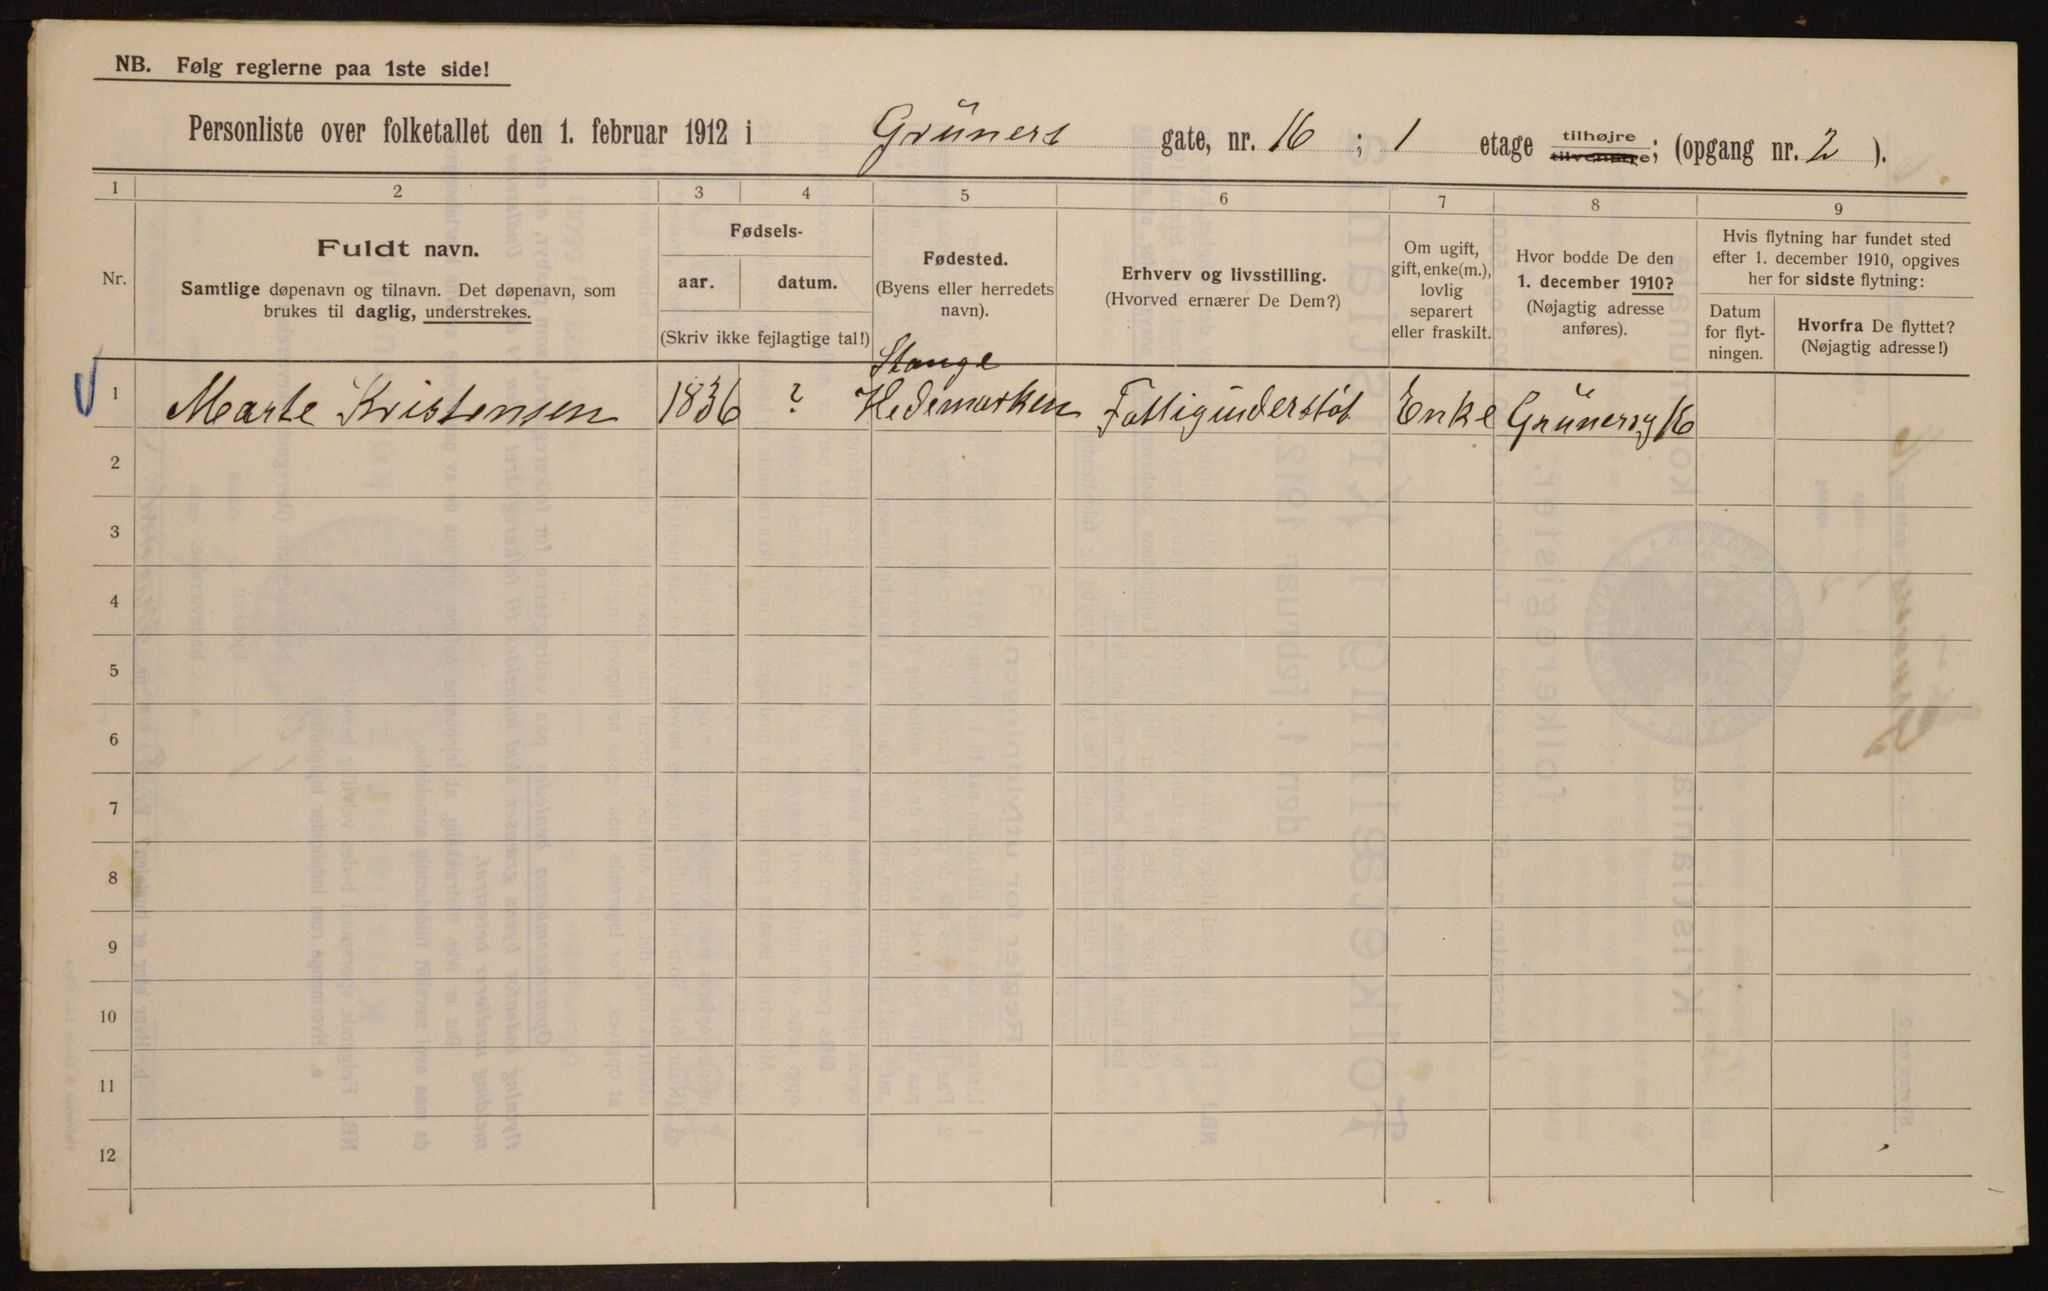 NB. Følg reglerne paa 1ste side!
Personliste over folketallet den 1. februar 1912 i Grüners gate, nr. 16 ; 1 etage tilhøjre tilvenstre; (opgang nr. 2 ).
1 2 3 4 5 6 7 8 9
Nr.
Fuldt navn.
Samtlige døpenavn og tilnavn. Det døpenavn, som
brukes til daglig, understrekes.
Fødsels-
aar. datum.
(Skriv ikke fejlagtige tal!)
Fødested.
(Byens eller herredets
navn).
Erhverv og livsstilling.
(Hvorved ernærer De Dem?)
Om ugift,
gift, enke(m.),
lovlig
separert
eller fraskilt.
Hvor bodde De den
1. december 1910?
(Nøjagtig adresse
anføres).
Hvis flytning har fundet sted
efter 1. december 1910, opgives
her for sidste flytning:
Datum
for flyt-
ningen.
Hvorfra De flyttet?
(Nøjagtig adresse!)
Stange
1 Marte Kristensen 1836 ? Hedemarken Fattigunderstøt Enke Grünersg 16
2
3
4
5
6
7
8
9
10
11
12